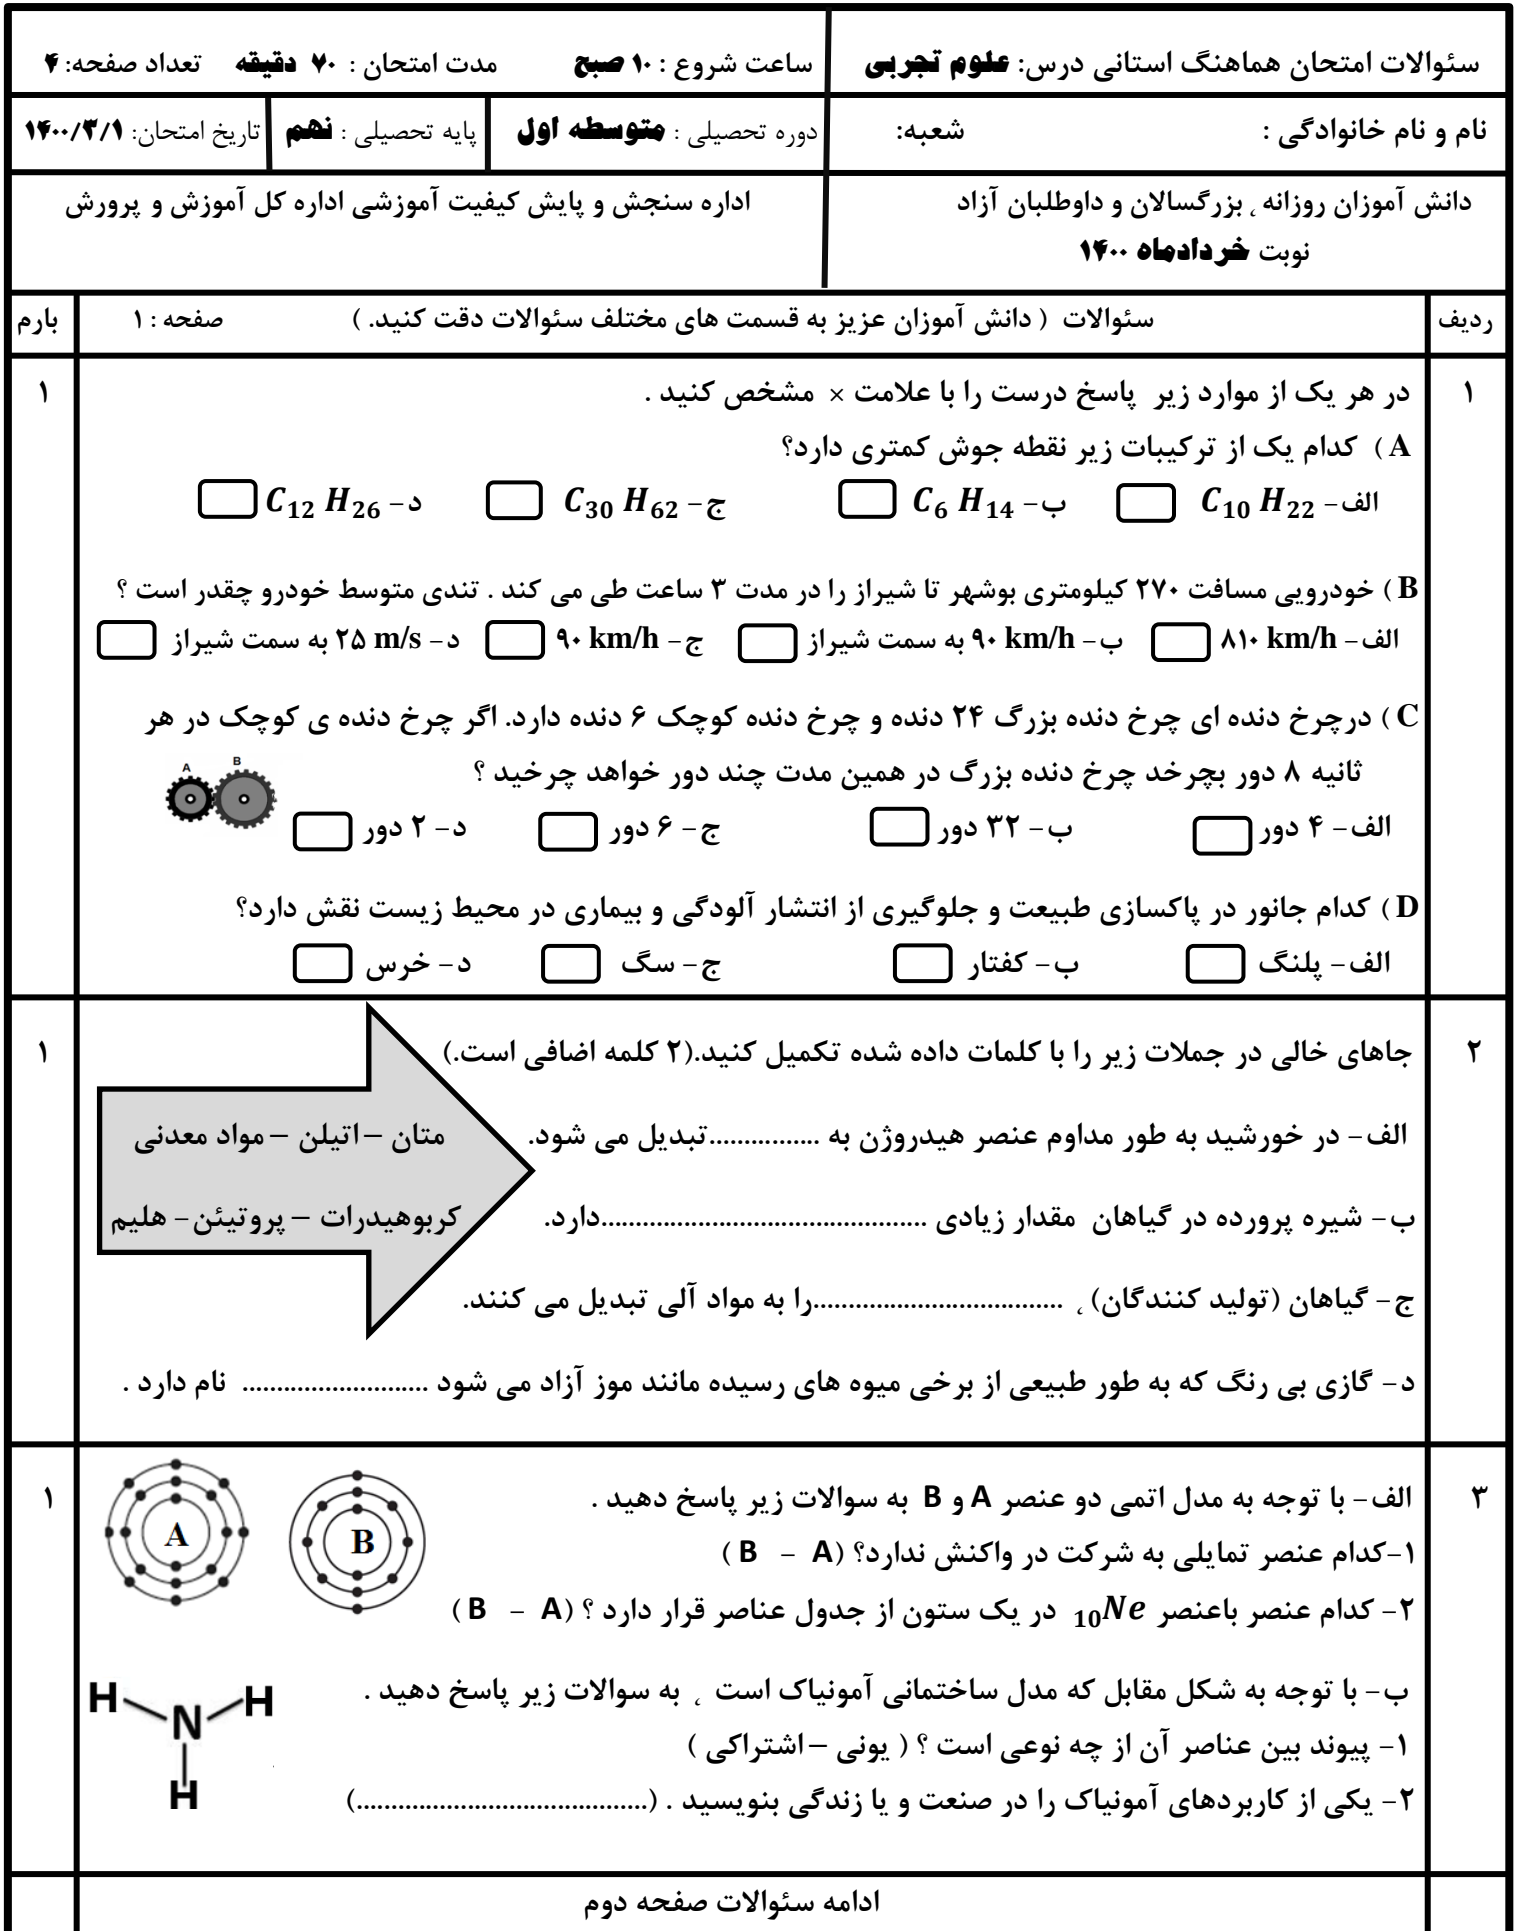 سئوالات امتحان هماهنگ استانی درس: علوم تجربی ساعت شروع : ۱۰ صبح مدت امتحان : ۷۰ دقیقه تعداد صفحه: ۴
نام و نام خانوادگی : شعبه: دوره تحصیلی : متوسطه اول پایه تحصیلی : نهم تاریخ امتحان: ۱۴۰۰/۳/۱
دانش آموزان روزانه ، بزرگسالان و داوطلبان آزاد اداره سنجش و پایش کیفیت آموزشی اداره کل آموزش و پرورش
نوبت خردادماه ۱۴۰۰
ردیف سئوالات ( دانش آموزان عزیز به قسمت های مختلف سئوالات دقت کنید. ) صفحه : ۱ بارم
۱ در هر یک از موارد زیر پاسخ درست را با علامت × مشخص کنید . ۱
A ) کدام یک از ترکیبات زیر نقطه جوش کمتری دارد؟
الف - C₁₀ H₂₂ ب - C₆ H₁₄ ج - C₃₀ H₆₂ د - C₁₂ H₂₆
B ) خودرویی مسافت ۲۷۰ کیلومتری بوشهر تا شیراز را در مدت ۳ ساعت طی می کند . تندی متوسط خودرو چقدر است ؟
الف - ۸۱۰ km/h ب - ۹۰ km/h به سمت شیراز ج - ۹۰ km/h د - ۲۵ m/s به سمت شیراز
C ) درچرخ دنده ای چرخ دنده بزرگ ۲۴ دنده و چرخ دنده کوچک ۶ دنده دارد. اگر چرخ دنده ی کوچک در هر
ثانیه ۸ دور بچرخد چرخ دنده بزرگ در همین مدت چند دور خواهد چرخید ؟
A B
الف - ۴ دور ب - ۳۲ دور ج - ۶ دور د - ۲ دور
D ) کدام جانور در پاکسازی طبیعت و جلوگیری از انتشار آلودگی و بیماری در محیط زیست نقش دارد؟
الف - پلنگ ب - کفتار ج - سگ د - خرس
۲ جاهای خالی در جملات زیر را با کلمات داده شده تکمیل کنید.(۲ کلمه اضافی است.) ۱
الف - در خورشید به طور مداوم عنصر هیدروژن به ................تبدیل می شود. متان – اتیلن – مواد معدنی
ب - شیره پرورده در گیاهان مقدار زیادی ...............................................دارد. کربوهیدرات – پروتیئن - هلیم
ج - گیاهان (تولید کنندگان) ، ....................................را به مواد آلی تبدیل می کنند.
د - گازی بی رنگ که به طور طبیعی از برخی میوه های رسیده مانند موز آزاد می شود ........................... نام دارد .
۳ الف - با توجه به مدل اتمی دو عنصر A و B به سوالات زیر پاسخ دهید . ۱
B A
۱-کدام عنصر تمایلی به شرکت در واکنش ندارد؟ (A - B )
۲- کدام عنصر باعنصر ₁₀Ne در یک ستون از جدول عناصر قرار دارد ؟ (A - B )
ب - با توجه به شکل مقابل که مدل ساختمانی آمونیاک است ، به سوالات زیر پاسخ دهید .
H N H
H
۱- پیوند بین عناصر آن از چه نوعی است ؟ ( یونی – اشتراکی )
۲- یکی از کاربردهای آمونیاک را در صنعت و یا زندگی بنویسید . (..........................................)
ادامه سئوالات صفحه دوم